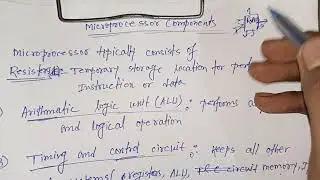 Microprocessor Components
Microprocessor typically consists of
Resister:- Temporary storage location for
Instruction or data
Arithmatic logic unit (ALU) :- performs
and logical operation
Timing and control circuit :- keeps all other
registers, ALU, memory,